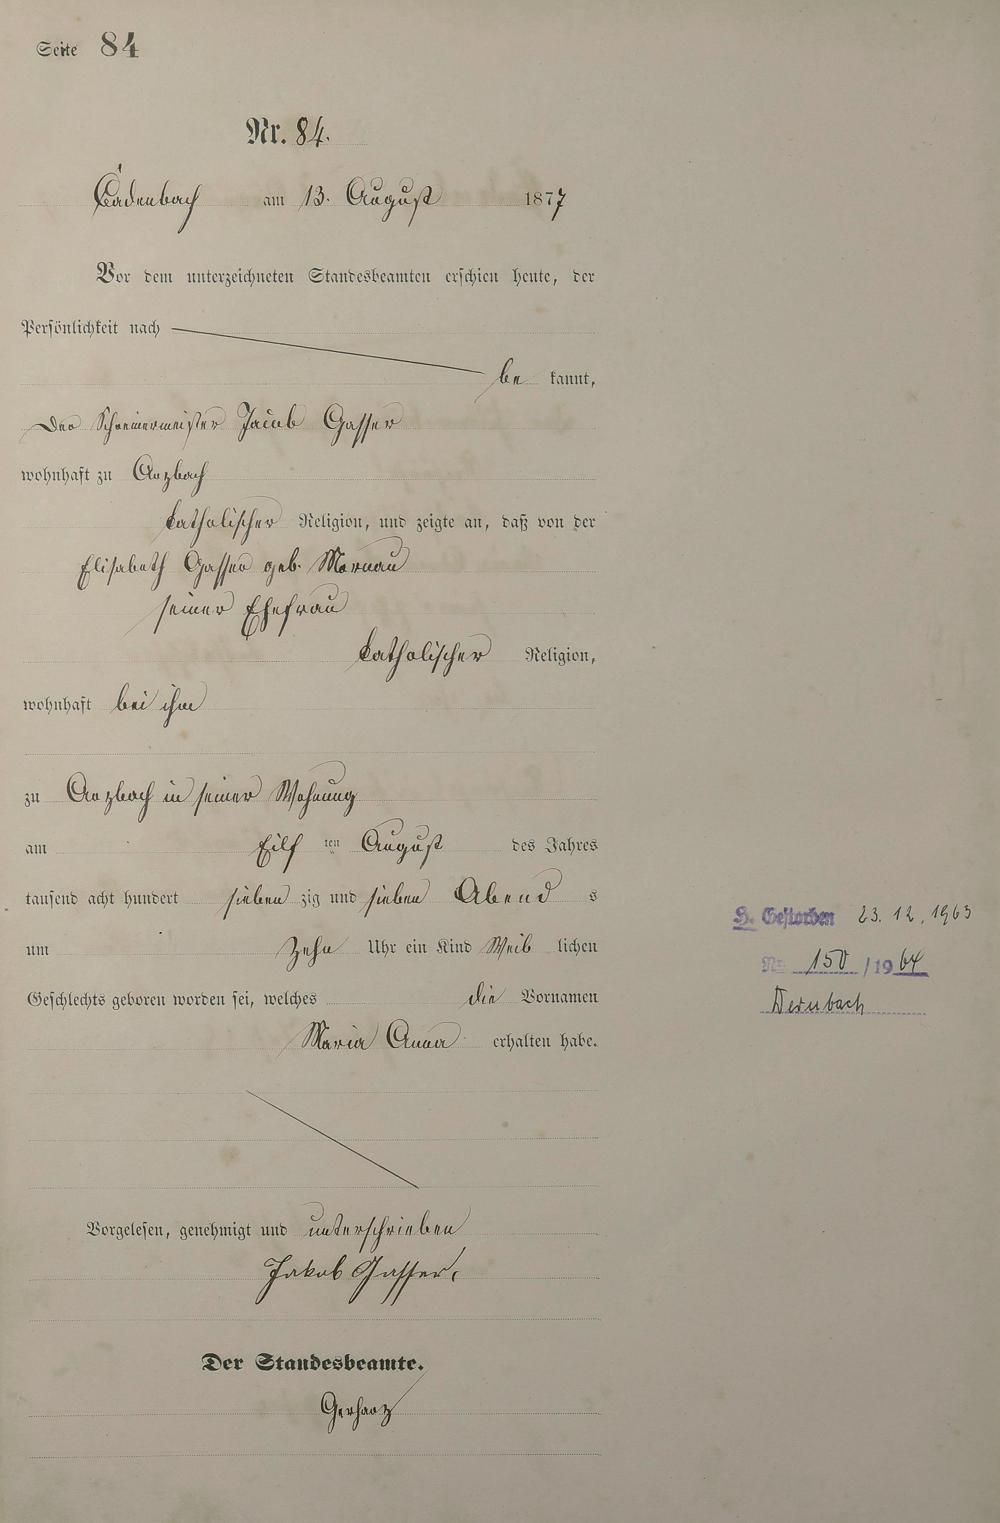 Seite 84
Nr. 84.
Cadenbach am 13. August 1877
Vor dem unterzeichneten Standesbeamten erschien heute, der
Persönlichkeit nach
be kannt,
der Schreinermeister Jacob Gasser
wohnhaft zu Arzbach
katholischer Religion, und zeigte an, daß von der
Elisabeth Gasser geb. Mornau
seiner Ehefrau
katholischer Religion,
wohnhaft bei ihm
zu Arzbach in seiner Wohnung
am Eilf ten August des Jahres
tausend acht hundert sieben zig und sieben Abend s
um Zehn Uhr ein Kind Weib lichen
Geschlechts geboren worden sei, welches die Vornamen
Maria Anna erhalten habe.
Vorgelesen, genehmigt und unterschrieben
Jakob Gasser,
Der Standesbeamte.
Gerharz
Gestorben 23.12.1963
Nr. 150 / 1964
Dernbach